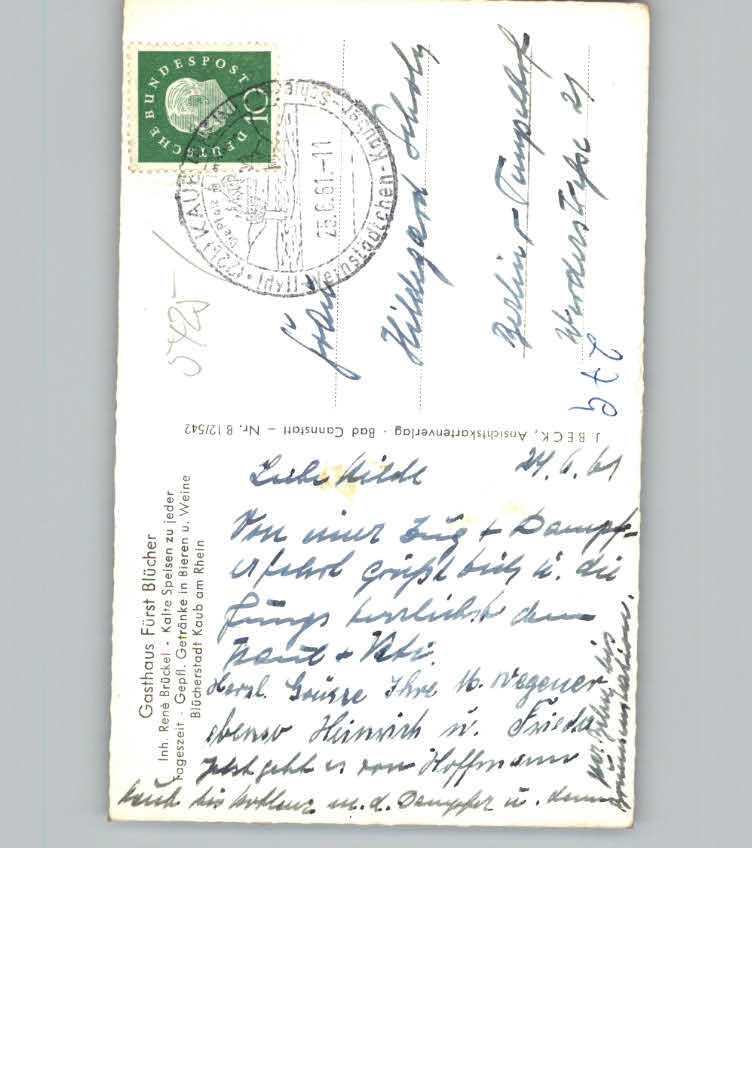 DEUTSCHE BUNDESPOST
10
(22b) KAUB
25.6.61.-11
Frau
Hildegard Scholz
Berlin - Tempelhof
Werderstraße 21
J. BECK, Ansichtskartenverlag · Bad Cannstatt – Nr. B 12/542
Gasthaus Fürst Blücher
Inh. Renè Brückel · Kalte Speisen zu jeder
Tageszeit · Gepfl. Getränke in Bieren u. Weine
Blücherstadt Kaub am Rhein
24.6.61
Liebe Hilde
Von einer Zug + Dampf-
erfahrt grüßt dich u. die
Jungs herzlichst
Herzl. Grüsse Ihre M. Wegener
ebenso Heinrich u. Frieda
Jetzt geht es von Hoffmann
Kaub bis Koblenz m. d. Dampfer u. dann